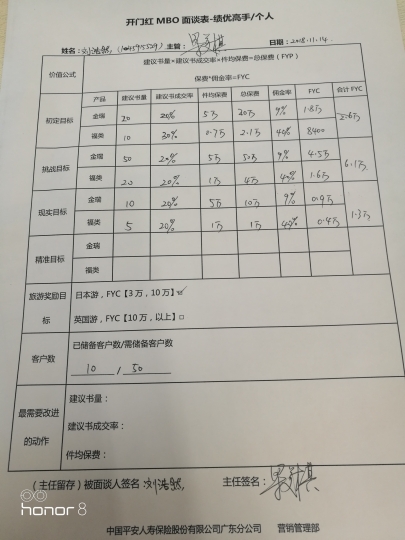 开门红 MBO 面谈表-绩优高手/个人
姓名: 刘浩 主管: 日期: 2018.11.14.
价值公式 建议书量×建议书成交率×件均保费=总保费(FYP)
保费*佣金率=FYC
产品 建议书量 建议书成交率 件均保费 总保费 佣金率 FYC 合计FYC
初定目标 金瑞 20 20% 5万 20万 9% 1.8万 2.6万
福类 10 30% 0.7万 2.1万 40% 8400
挑战目标 金瑞 50 20% 5万 50万 9% 4.5万 6.1万
福类 20 20% 1万 4万 40% 1.6万
现实目标 金瑞 10 20% 5万 10万 9% 0.9万 1.3万
福类 5 20% 1万 1万 40% 0.4万
精准目标 金瑞
福类
旅游奖励目标 日本游,FYC【3万,10万】☑
英国游,FYC【10万,以上】□
客户数 已储备客户数/需储备客户数
10 / 50
最需要改进的动作 建议书量:
建议书成交率:
件均保费:
(主任留存)被面谈人签名: 刘浩 主任签名:
honor 8
中国平安人寿保险股份有限公司广东分公司 营销管理部